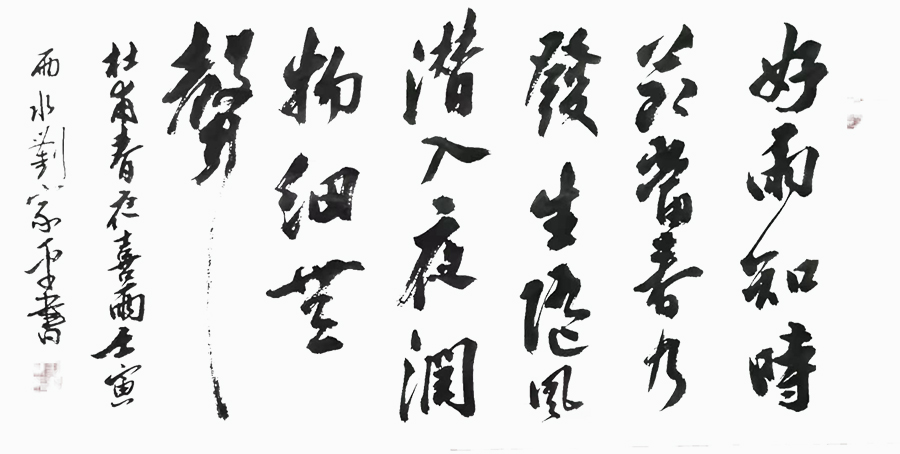 好雨知時
節當春乃
發生隨風
潜入夜潤
物細無
聲
杜甫春夜喜雨壬寅
雨水劉家平書